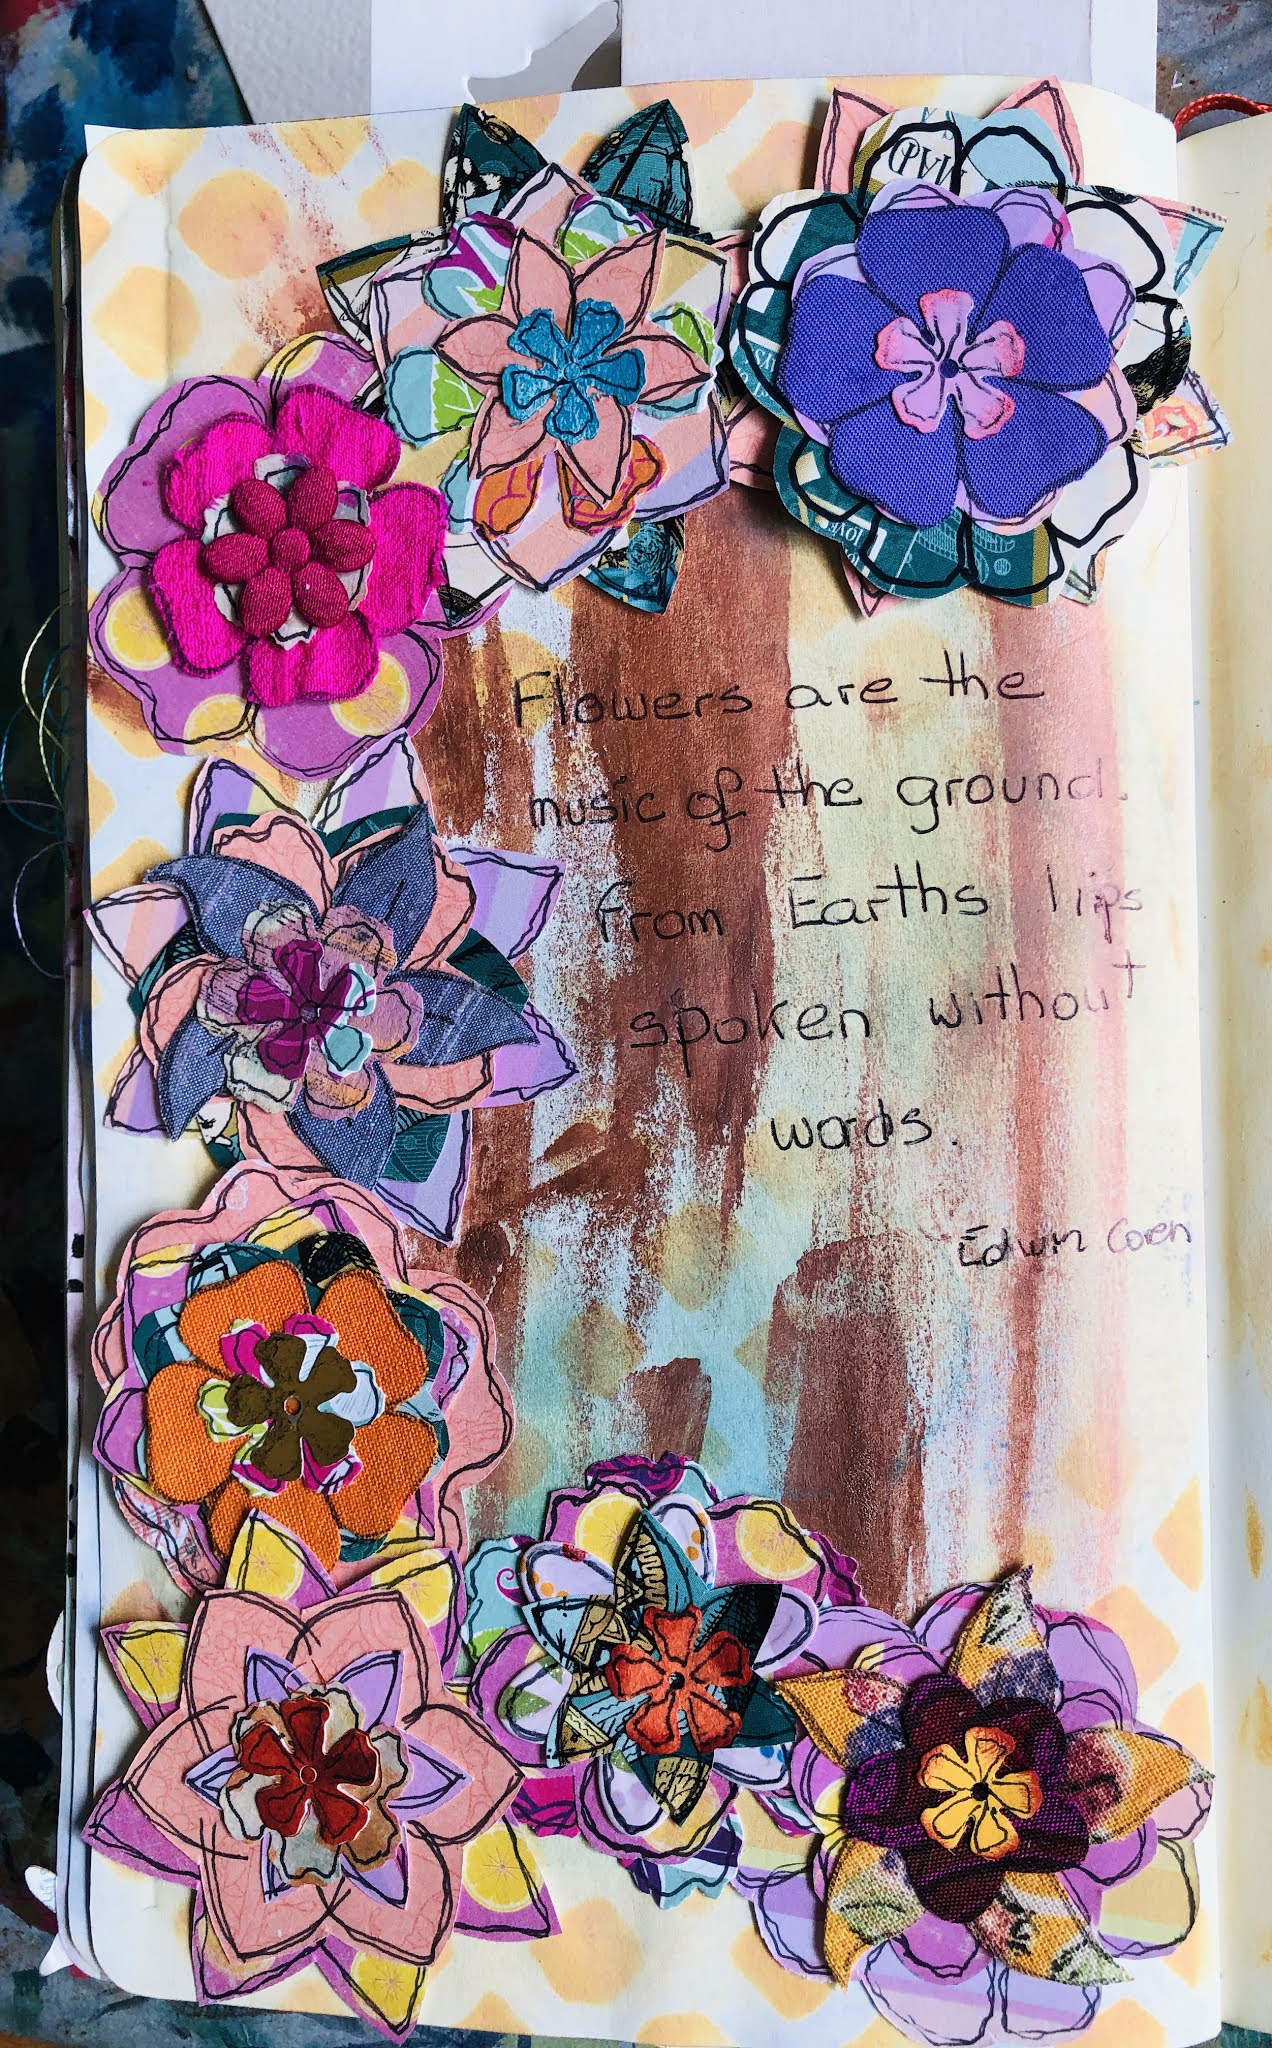 Flowers are the
music of the ground.
from Earths lips
spoken without
words.
Edwin Coren
LOVE